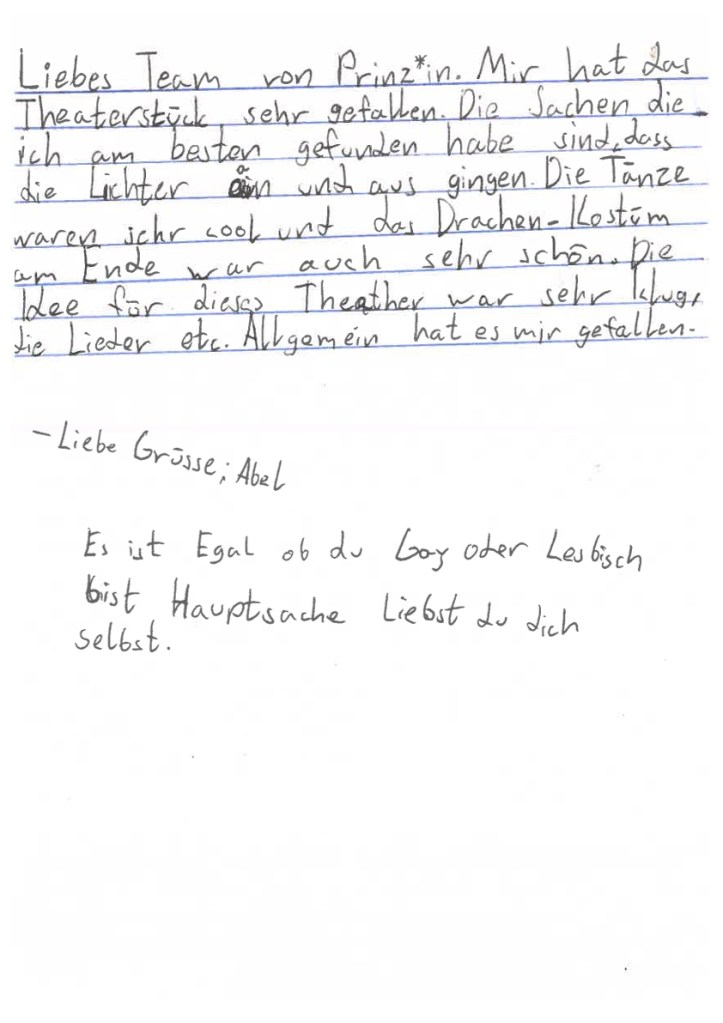 Liebes Team von Prinz*in. Mir hat das
Theaterstück sehr gefallen. Die Sachen die
ich am besten gefunden habe sind, dass
die Lichter an und aus gingen. Die Tänze
waren sehr cool und das Drachen-Kostüm
am Ende war auch sehr schön. Die
Idee für dieses Theather war sehr klug,
die Lieder etc. Allgemein hat es mir gefallen.
-Liebe Grüsse; Abel
Es ist Egal ob du Gay oder Lesbisch
bist Hauptsache Liebst du dich
selbst.